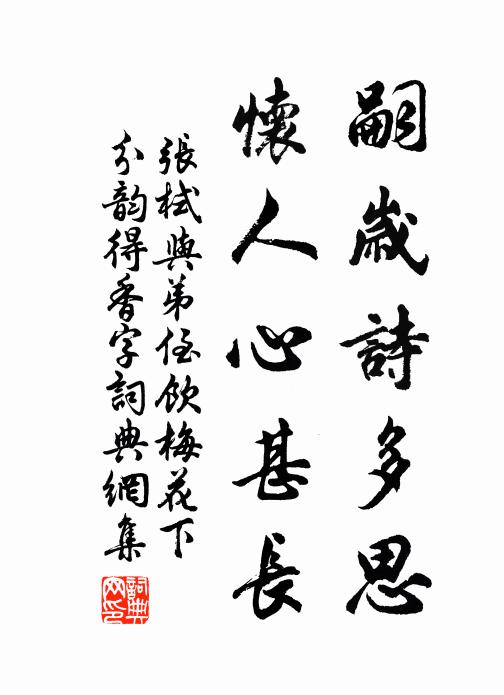 嗣歲詩多思
懷人心甚長
張栻與弟侄飲梅花下
分韵得香字詞典網集
詞典网印